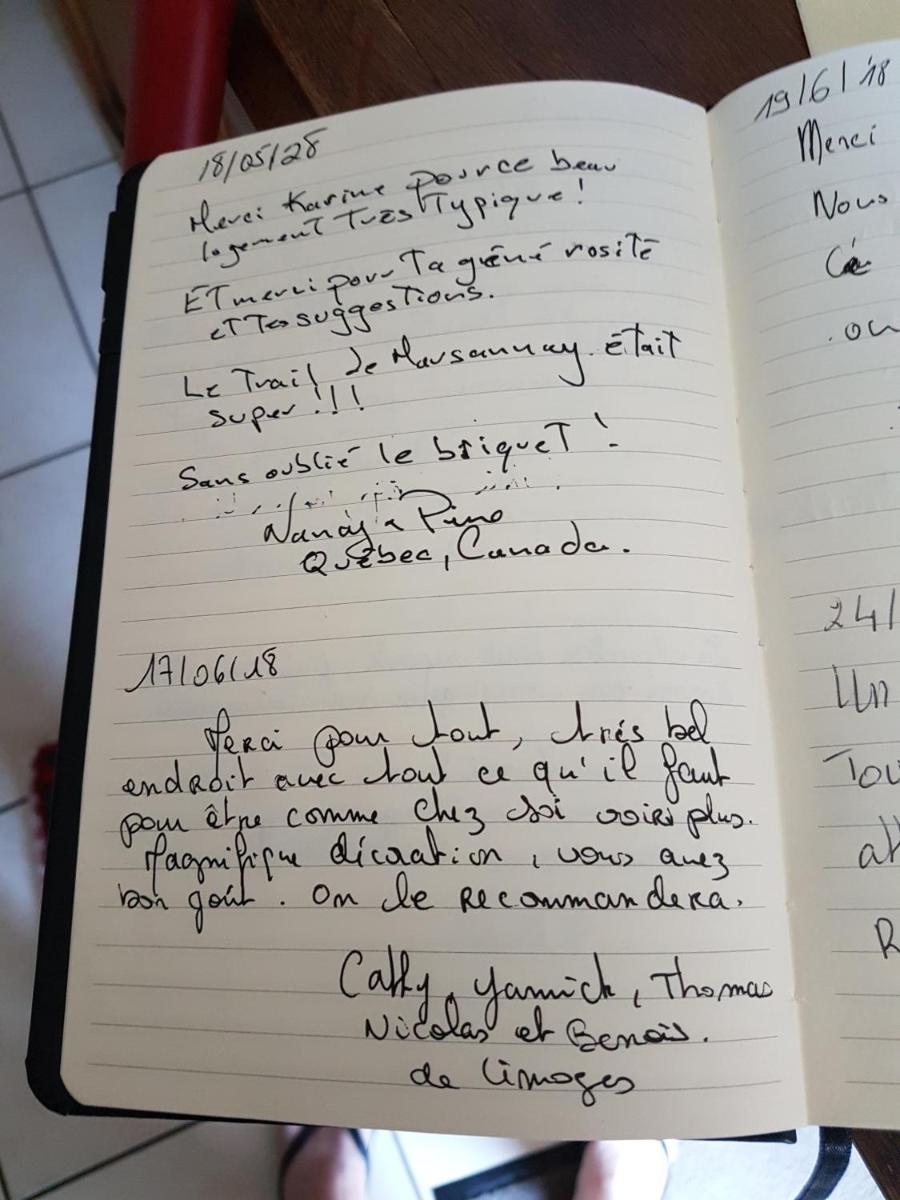 18/05/28
Merci Karine pour ce beau
logement Très Typique !
ET merci pour Ta généré rosité
et Tes suggestions.
Le Trail de Marsannay était
super !!!
Sans oublié le briqueT !
Nancy Pino
Québec, Canada.
17/06/18
Merci pour tout, trés bel
endroit avec tout ce qu'il faut
pour être comme chez soi voire plus.
Magnifique décoration, vous avez
bon goût. On le recommandera.
Cathy, Yannick, Thomas
Nicolas et Benoit.
de Limoges
19/6/18
Merci
Nous
ou
24/
Un
Tou
at
R